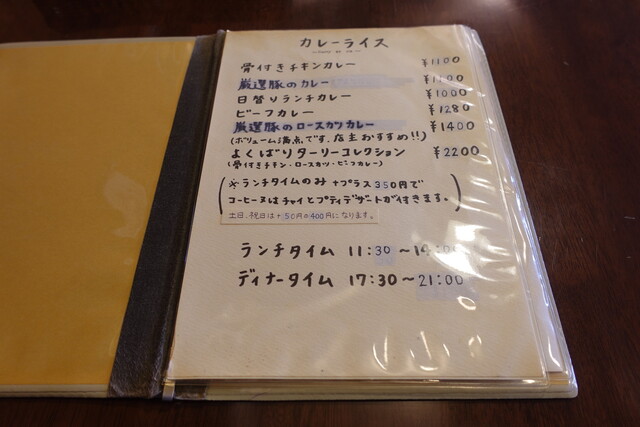 カレーライス
骨付きチキンカレー ¥1100
厳選豚のカレー ¥1100
日替りランチカレー ¥1000
ビーフカレー ¥1280
厳選豚のロースカツカレー ¥1400
(ボリューム満点です。店主おすすめ!!)
よくばりターリーコレクション ¥2200
(骨付きチキン・ロースカツ・ビーフカレー)
(※ランチタイムのみ +プラス350円で
コーヒー又はチャイとプティデザートが付きます。)
土日、祝日は+50円の400円になります。
ランチタイム 11:30 〜14:00
ディナータイム 17:30〜21:00